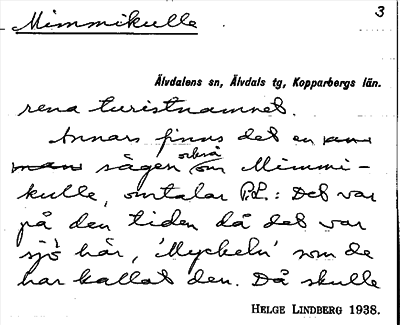 Mimmikulle
3
Älvdalens sn, Älvdals tg, Kopparbergs län.
rena turistnamnet.
Annars finns det en
sägen också om Mimmi-
kulle, omtalar P.L.: Det var
på den tiden då det var
sjö här, 'Myckeln' som de
har kallat den. Då skulle
HELGE LINDBERG 1938.